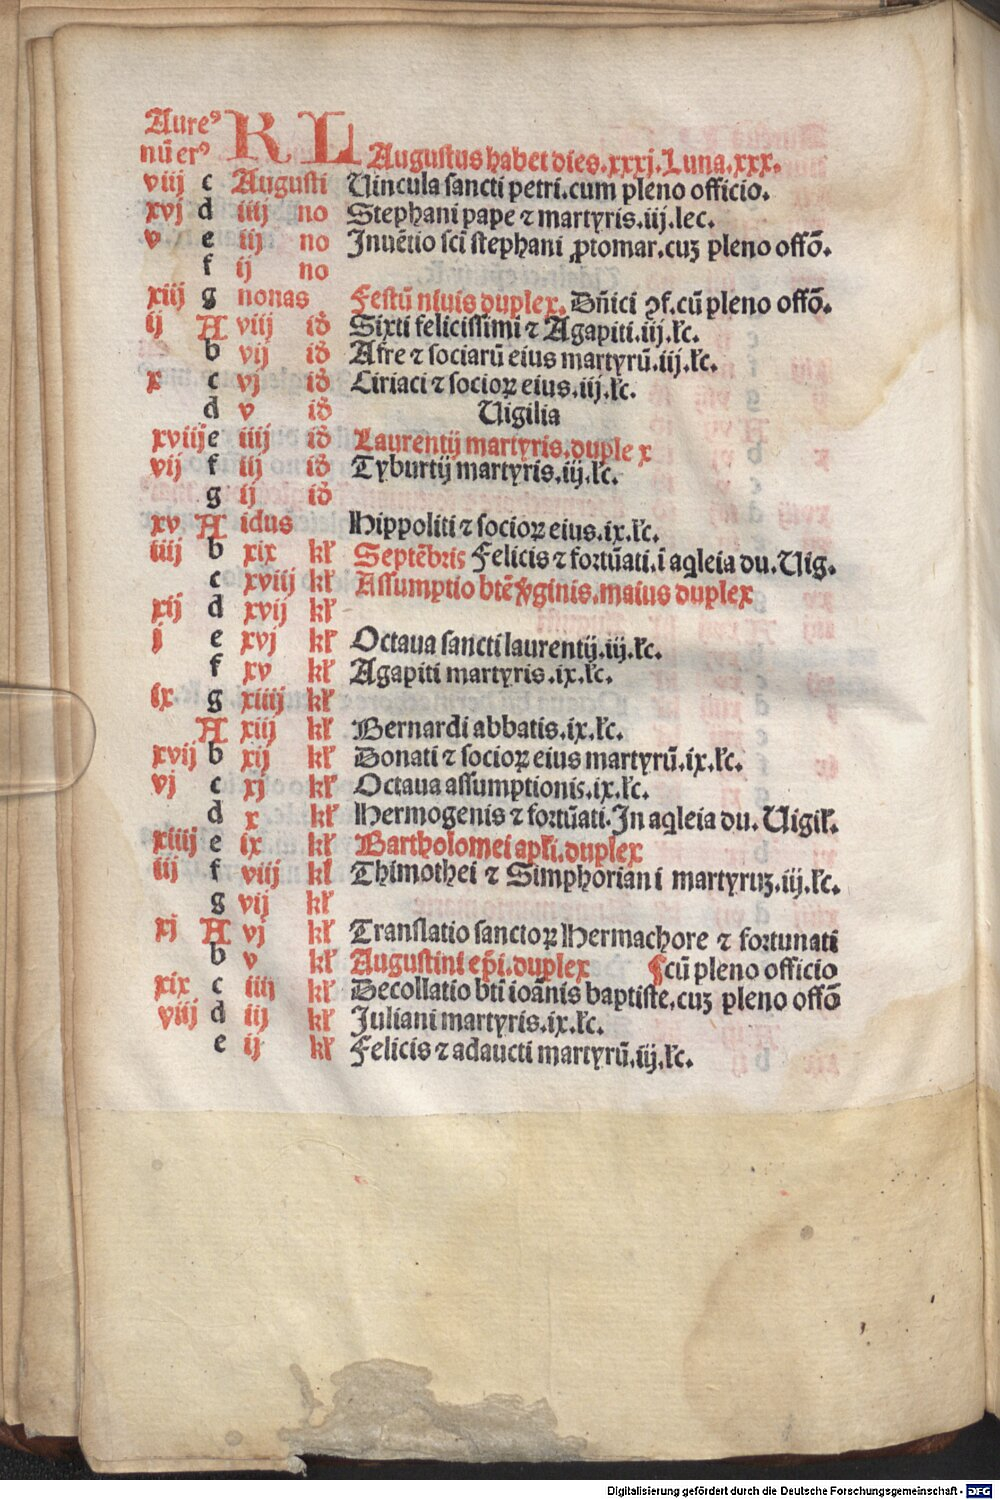 Aureꝰ
nūerꝰ KL Augustus habet dies.xxxj.Luna.xxx.
viij c Augusti Uincula sancti petri.cum pleno officio.
xvj d iiij no Stephani pape ⁊ martyris.iij.lec.
v e iij no Inuētio scī stephani ꝓtomar.cuꝫ pleno offō.
f ij no
xiij g nonas Festū niuis duplex. Dn̄ici ꝯf.cū pleno offō.
ij A viij id̄ Sixti felicissimi ⁊ Agapiti.iij.łc.
b vij id̄ Afre ⁊ sociarū eius martyrū.iij.łc.
x c vj id̄ Ciriaci ⁊ socioꝝ eius.iij.łc.
d v id̄ Uigilia
xviij e iiij id̄ Laurentij martyris.duple x
vij f iij id̄ Tyburtij martyris.iij.łc.
g ij id̄
xv A idus Hippoliti ⁊ socioꝝ eius.ix.łc.
iiij b xix kł Septēbris Felicis ⁊ fortūati.ī aqleia du.Uig.
c xviij kł Assumptio btē ṽginis.maius duplex
xij d xvij kł
j e xvj kł Octaua sancti laurentij.iij.łc.
f xv kł Agapiti martyris.ix.łc.
ix g xiiij kł
A xiij kł Bernardi abbatis.ix.łc.
xvij b xij kł Donati ⁊ socioꝝ eius martyrū.ix.łc.
vj c xj kł Octaua assumptionis.ix.łc.
d x kł Hermogenis ⁊ fortūati.In aqleia du. Uigił.
xiiij e ix kł Bartholomei apłi.duplex
iij f viij kł Thimothei ⁊ Simphoriani martyruꝫ.iij.łc.
g vij kł
xj A vj kł Translatio sanctoꝝ Hermachore ⁊ fortunati
b v kł Augustini ep̄i.duplex ⸿cū pleno officio
xix c iiij kł Decollatio btī ioānis baptiste.cuꝫ pleno offō
viij d iij kł Juliani martyris.ix.łc.
e ij kł Felicis ⁊ adaucti martyrū.iij.łc.
Digitalisierung gefördert durch die Deutsche Forschungsgemeinschaft - DFG